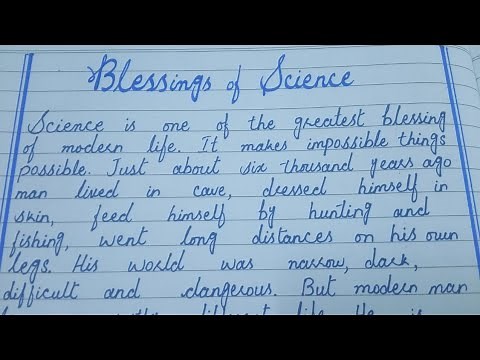 Blessings of Science
Science is one of the greatest blessing
of modern life. It makes impossible things
possible. Just about six thousand years ago
man lived in cave, dressed himself in
skin, feed himself by hunting and
fishing, went long distances on his own
legs. His world was narrow, dark,
difficult and dangerous. But modern man